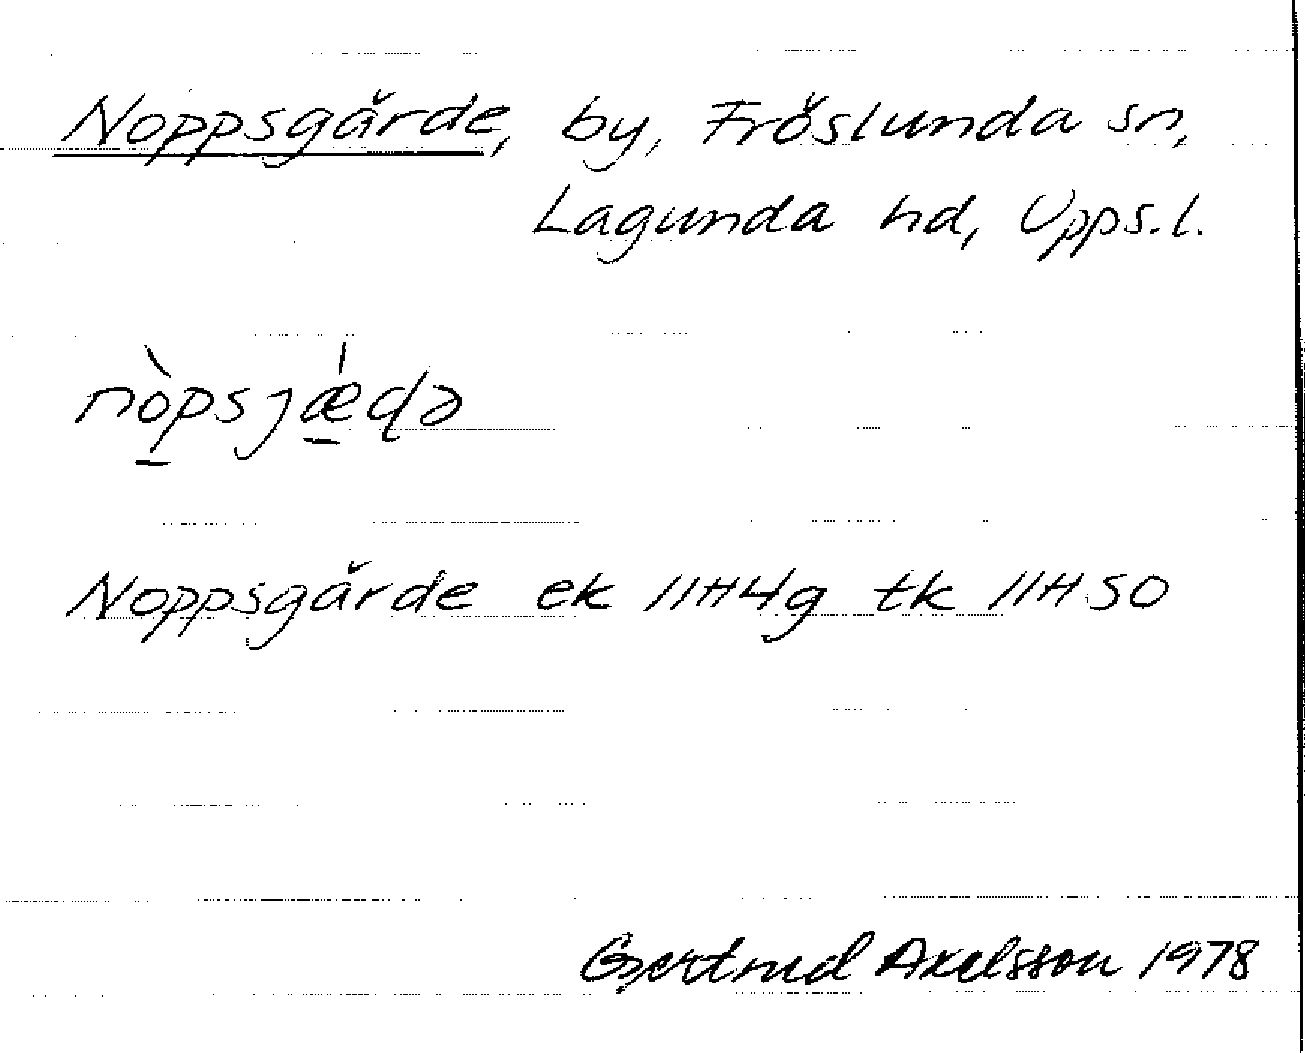 Noppsgärde, by, Fröslunda sn,
Lagunda hd, Upps.l.
nòpsjǽḍə
Noppsgärde ek 11H4g tk 11H SO
Gertrud Axelsson 1978